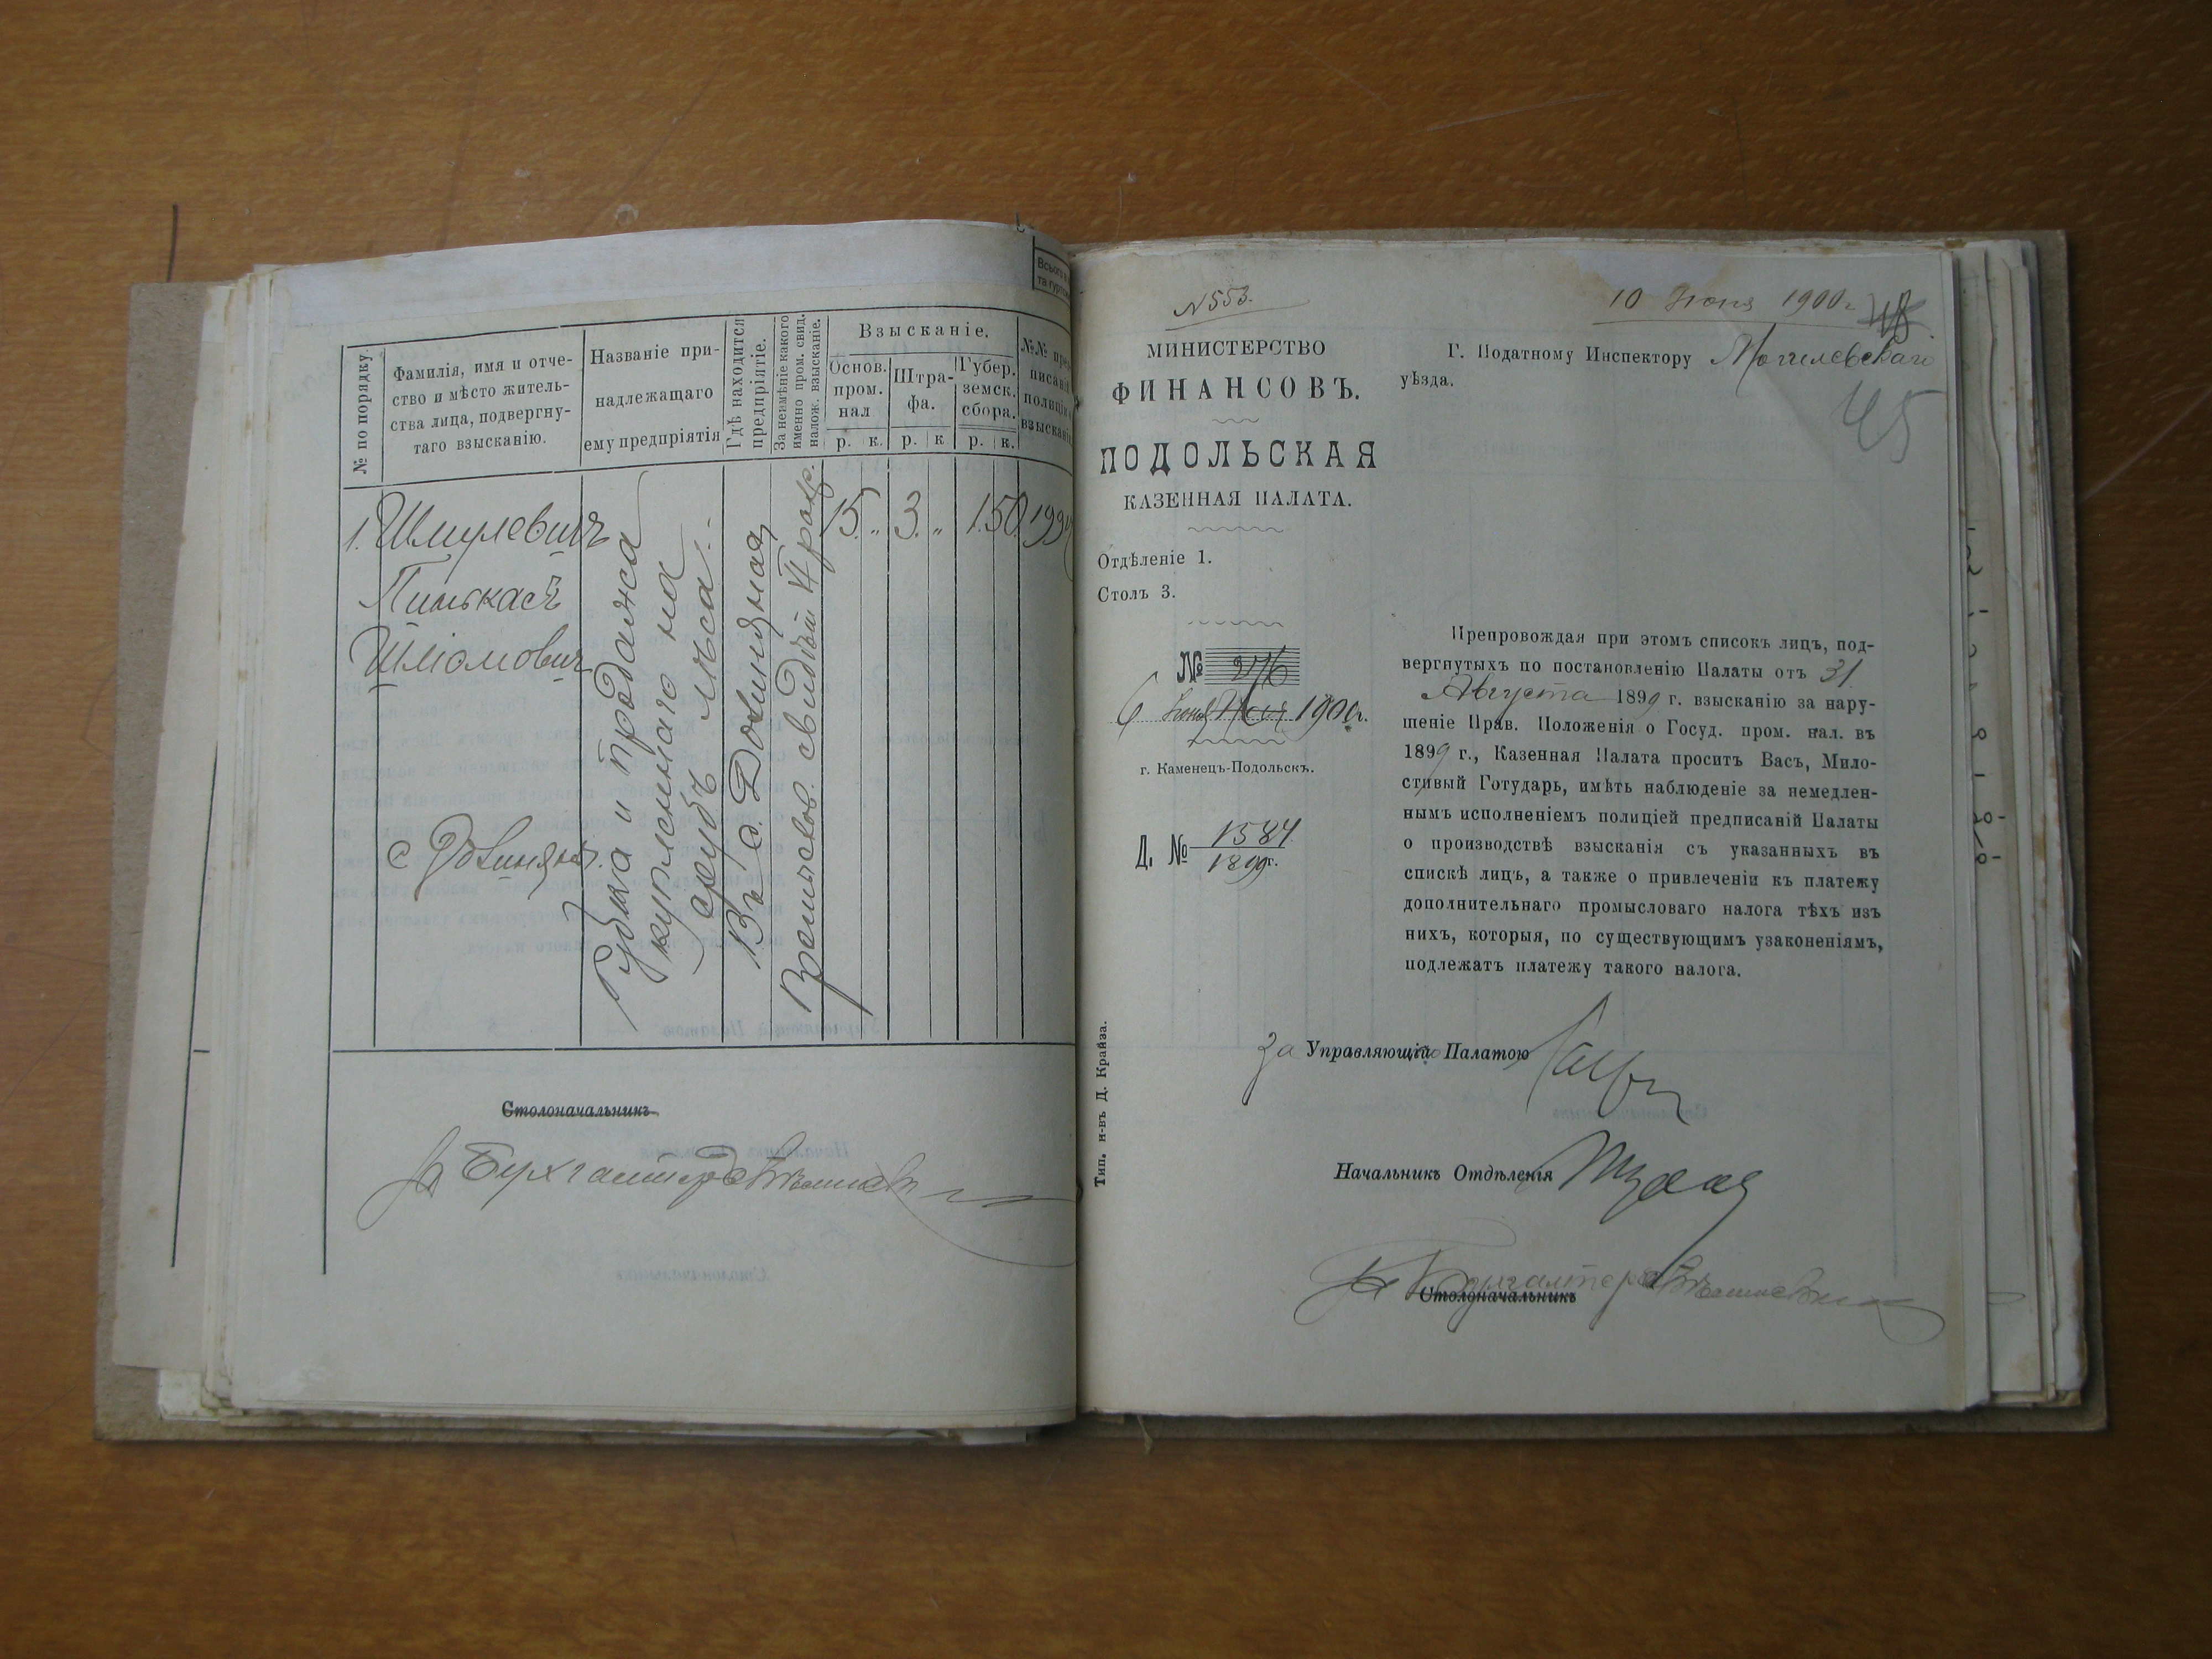 № по порядку.
Фамилія, имя и отче-
ство и мѣсто житель-
ства лица, подвергну-
таго взысканію.
Названіе при-
надлежащаго
ему предпріятія
Гдѣ находится
предпріятіе.
За неимѣніе какого
именно пром. свид.
налож. взысканіе.
Взысканіе.
Основ.
пром.
нал
Штра-
фа.
Губер.
земск.
сбора.
р. к. р. к р. к.
1. Шмулевичъ
Пинькасъ
Шліомовичъ
с
Рубка и продажа
купленнаго на
срубъ лѣса.
Въ с.
15 „ 3 „ 1 50
Столоначальникъ
Всього
та гурто
N 553.
МИНИСТЕРСТВО
ФИНАНСОВЪ.
ПОДОЛЬСКАЯ
КАЗЕННАЯ ПАЛАТА.
Отдѣленіе 1.
Столъ 3.
№ 276
6 Іюня 1900 г.
г. Каменецъ-Подольскъ.
Д. № 1584
1899 г.
Тип. н-въ Д. Крайза.
10 Іюня 1900 г.
Г. Податному Инспектору Могилевскаго
уѣзда.
45
Препровождая при этомъ списокъ лицъ, под-
вергнутыхъ по постановленію Палаты отъ 31
Августа 1899 г. взысканію за нару-
шеніе Прав. Положенія о Госуд. пром. нал. въ
1899 г., Казенная Палата проситъ Васъ, Мило-
стивый Готударь, имѣть наблюденіе за немедлен-
нымъ исполненіемъ полиціей предписаній Палаты
о производствѣ взысканія съ указанныхъ въ
спискѣ лицъ, а также о привлеченіи къ платежу
дополнительнаго промысловаго налога тѣхъ изъ
нихъ, которыя, по существующимъ узаконеніямъ,
подлежатъ платежу такого налога.
За Управляющій Палатою
Начальникъ Отдѣленія
Столоначальникъ